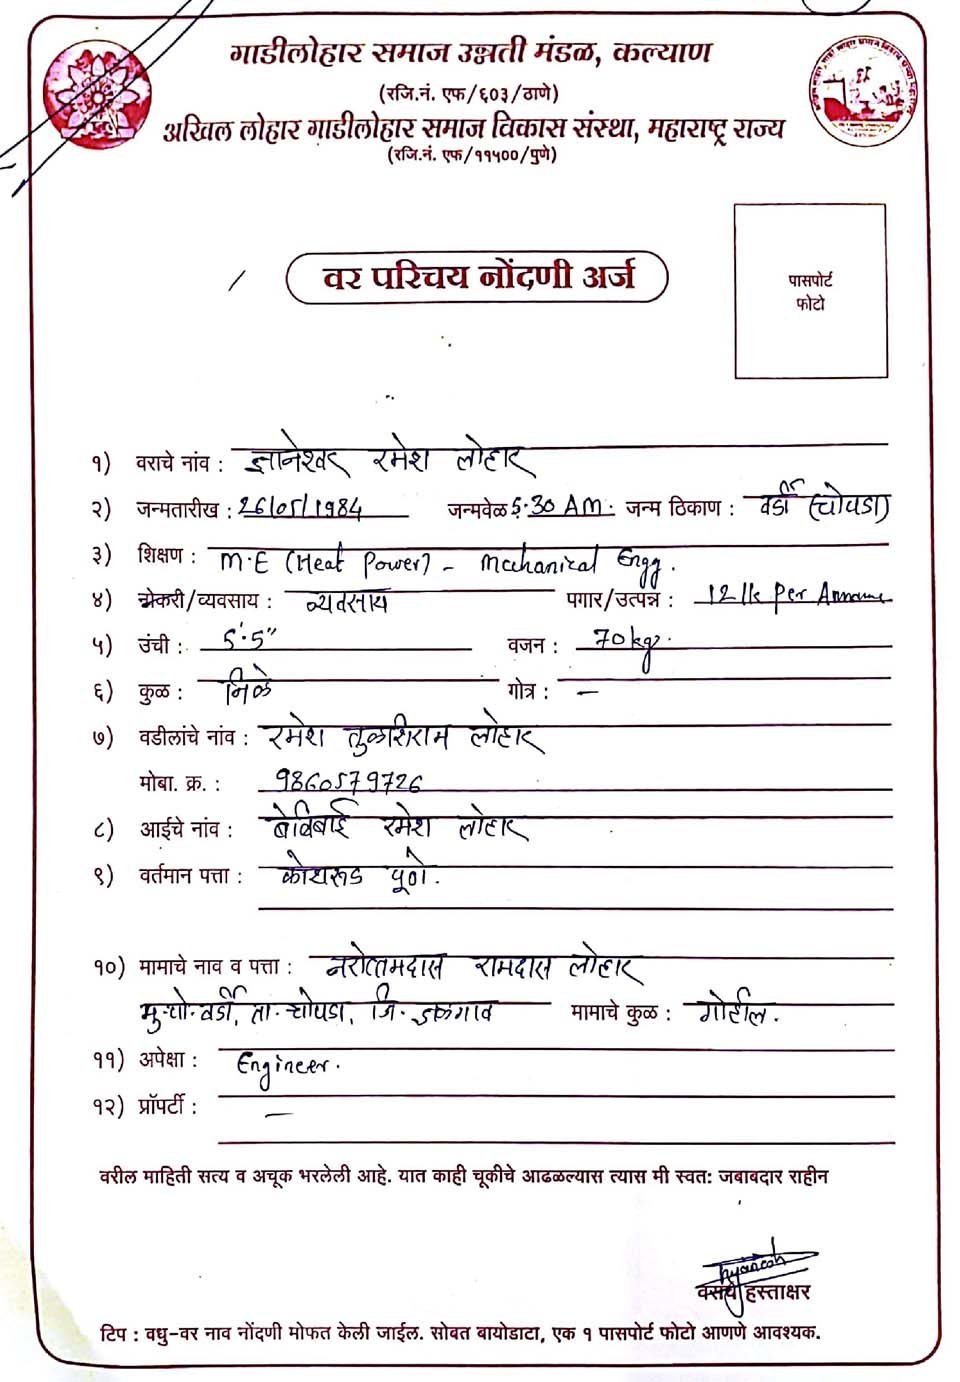 गाडीलोहार समाज उन्नती मंडळ, कल्याण
(रजि.नं. एफ/६०३/ठाणे)
अखिल लोहार गाडीलोहार समाज विकास संस्था, महाराष्ट्र राज्य
(रजि.नं. एफ/११५००/पुणे)
पासपोर्ट
फोटो
वर परिचय नोंदणी अर्ज
१) वराचे नांव : ज्ञानेश्वर रमेश लोहार
२) जन्मतारीख : 26/05/1984 जन्मवेळ 5.30 AM. जन्म ठिकाण : वर्डी (चोपडा)
३) शिक्षण : M.E (Heat Power) - Mechanical Engg.
४) नोकरी/व्यवसाय : व्यवसाय पगार/उत्पन्न : 12 lk Per Annum
५) उंची : 5'.5" वजन : 70 kg.
६) कुळ : निळे गोत्र : —
७) वडीलांचे नांव : रमेश तुळशिराम लोहार
मोबा. क्र. : 9860579726
८) आईचे नांव : बेबिबाई रमेश लोहार
९) वर्तमान पत्ता : कोथरूड पूणे.
१०) मामाचे नाव व पत्ता : नरोत्तमदास रामदास लोहार
मु.पो. वर्डी, ता. चोपडा, जि. जळगाव मामाचे कुळ : गोहील.
११) अपेक्षा : Engineer.
१२) प्रॉपर्टी : —
वरील माहिती सत्य व अचूक भरलेली आहे. यात काही चूकीचे आढळल्यास त्यास मी स्वत: जबाबदार राहीन
हस्ताक्षर
टिप : वधु-वर नाव नोंदणी मोफत केली जाईल. सोबत बायोडाटा, एक १ पासपोर्ट फोटो आणणे आवश्यक.